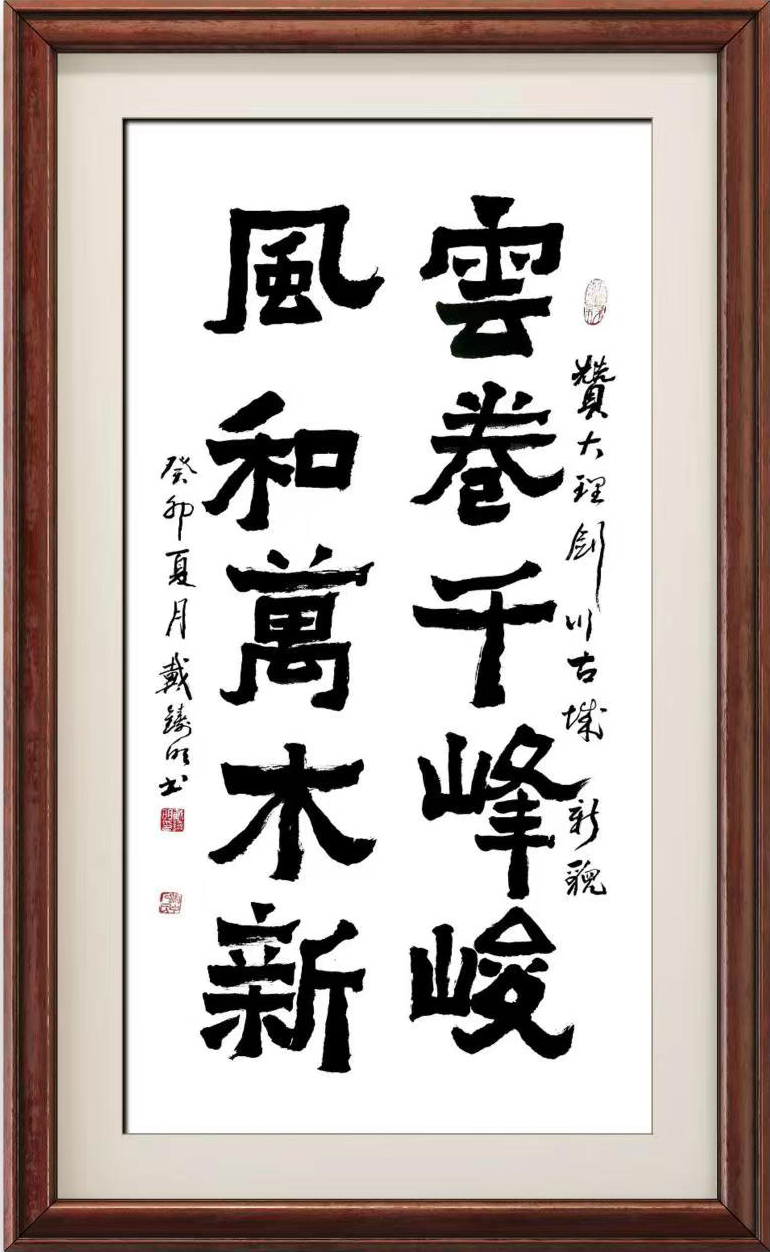 雲卷千峰峻
贊大理剑川古城新貌
風和萬木新
癸卯夏月戴鑄明书